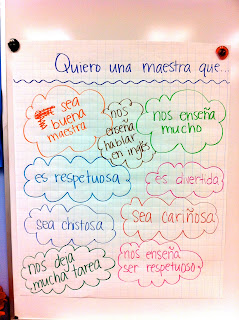 Quiero una maestra que...
sea
buena
maestra
nos
enseña
hablar
en inglés
nos enseña
mucho
es respetuosa
es divertida
sea chistosa
sea cariñosa
nos deja
mucha tarea
nos enseña
ser respetuoso